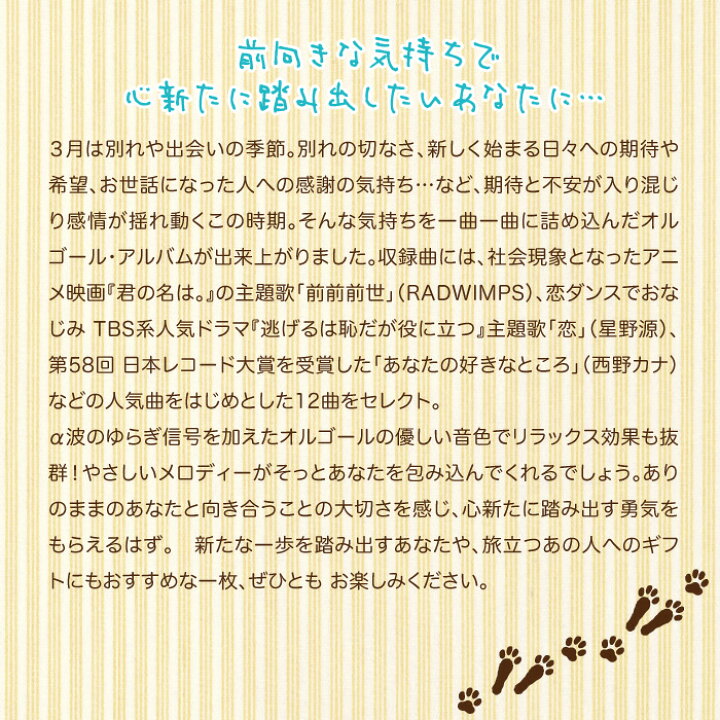 前向きな気持ちで
心新たに踏み出したいあなたに…
３月は別れや出会いの季節。別れの切なさ、新しく始まる日々への期待や
希望、お世話になった人への感謝の気持ち…など、期待と不安が入り混じ
り感情が揺れ動くこの時期。そんな気持ちを一曲一曲に詰め込んだオル
ゴール・アルバムが出来上がりました。収録曲には、社会現象となったアニ
メ映画『君の名は。』の主題歌「前前前世」（RADWIMPS）、恋ダンスでおな
じみ TBS系人気ドラマ『逃げるは恥だが役に立つ』主題歌「恋」（星野源）、
第58回 日本レコード大賞を受賞した「あなたの好きなところ」（西野カナ）
などの人気曲をはじめとした12曲をセレクト。
α波のゆらぎ信号を加えたオルゴールの優しい音色でリラックス効果も抜
群！やさしいメロディーがそっとあなたを包み込んでくれるでしょう。あり
のままのあなたと向き合うことの大切さを感じ、心新たに踏み出す勇気を
もらえるはず。　新たな一歩を踏み出すあなたや、旅立つあの人へのギフ
トにもおすすめな一枚、ぜひとも お楽しみください。